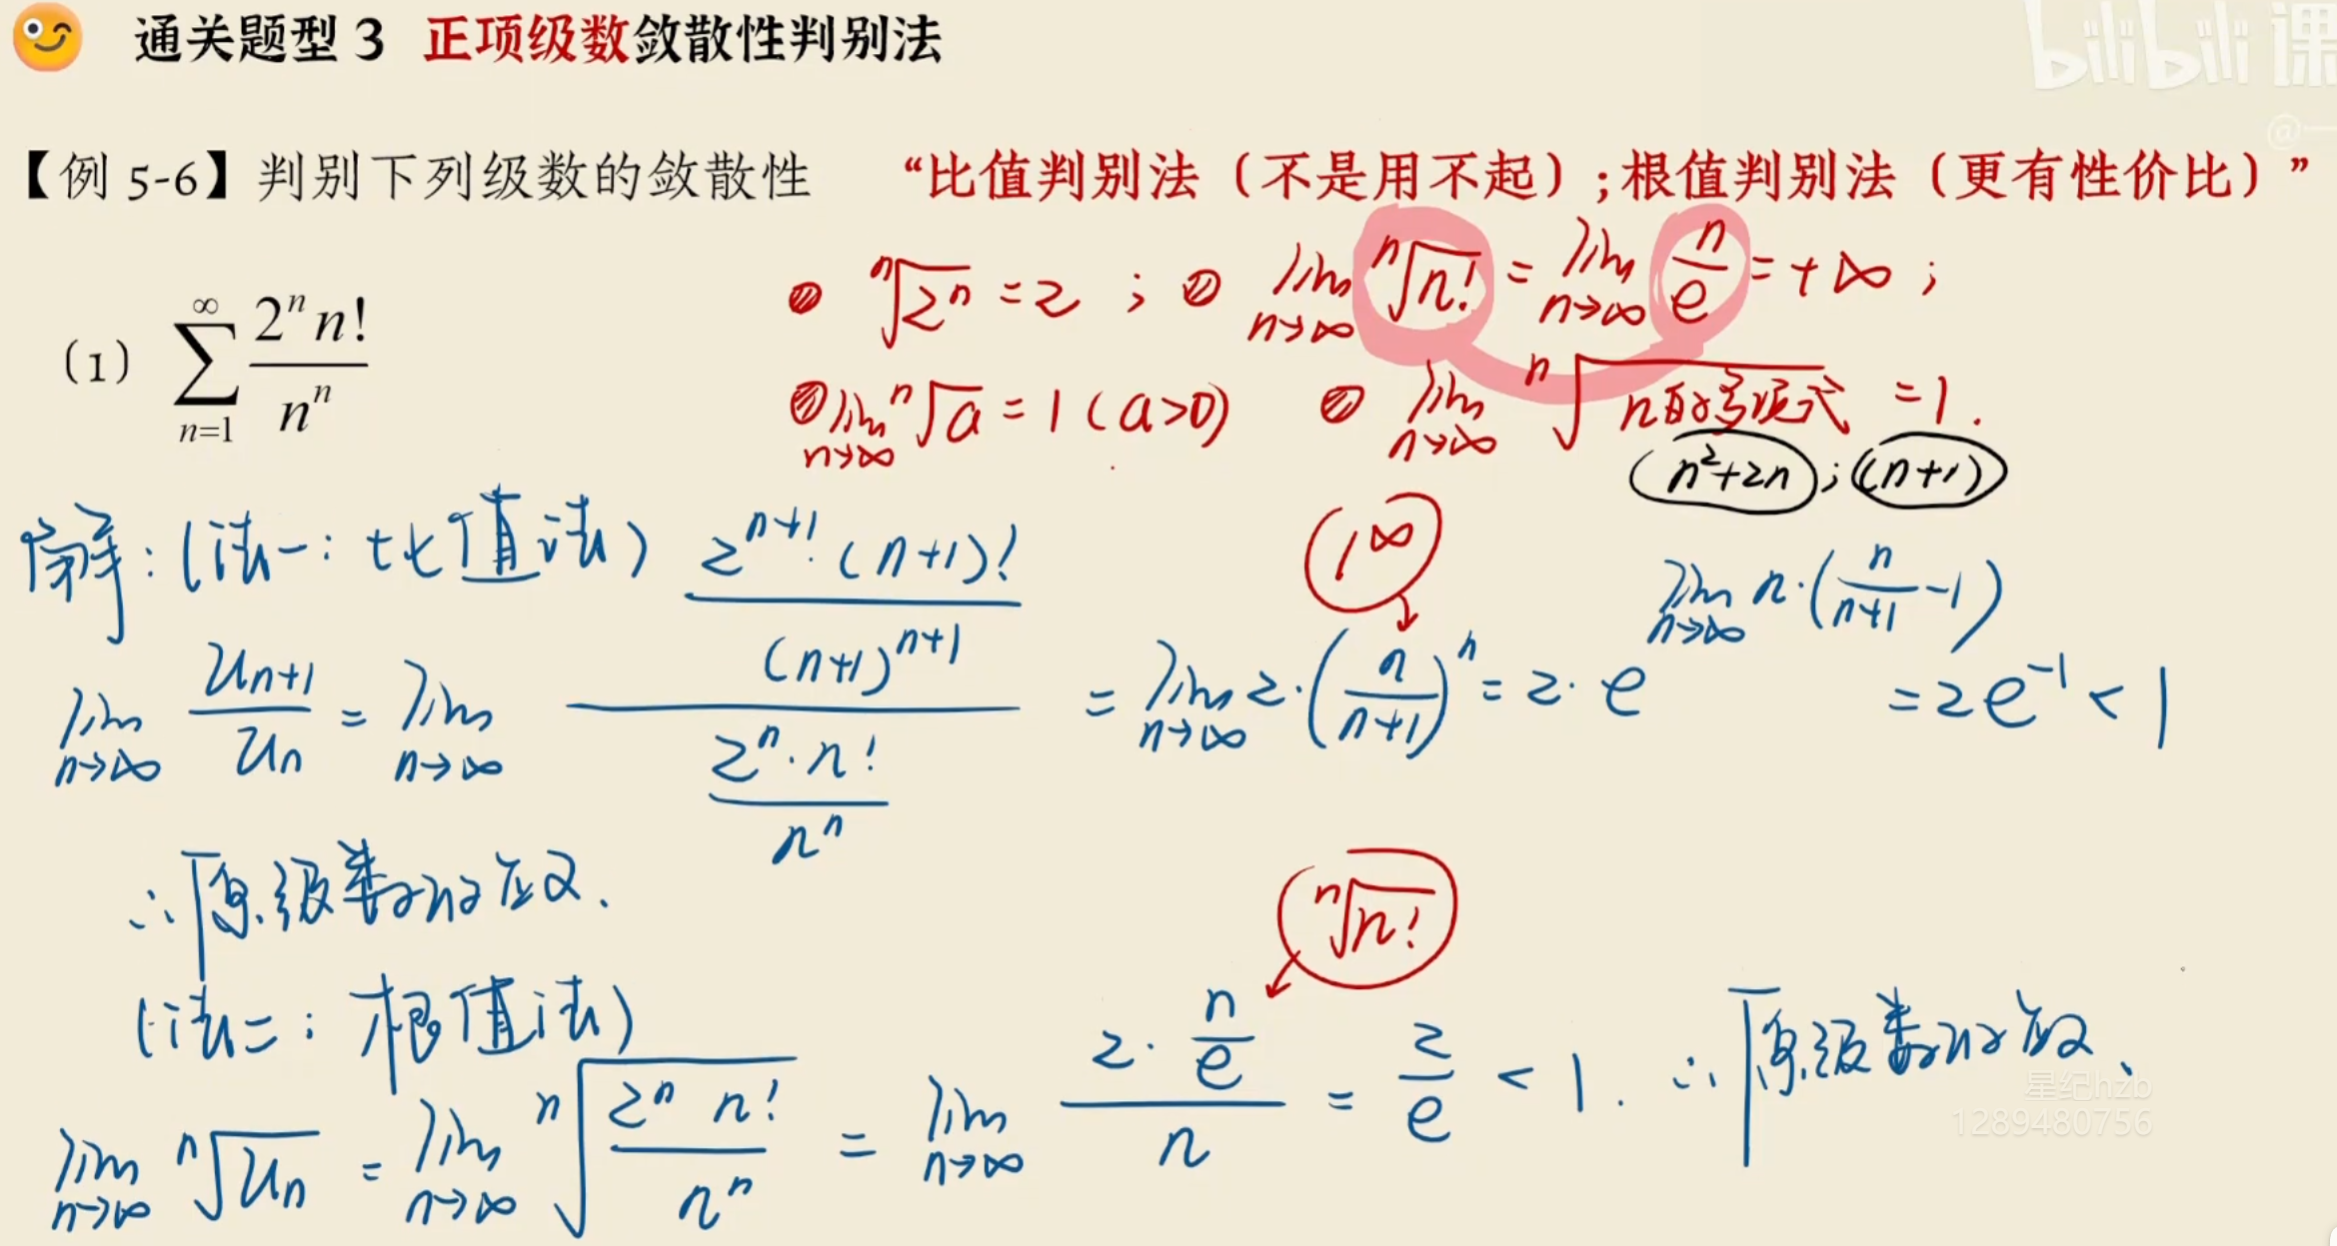 通关题型 3 正项级数敛散性判别法
bilibili 课
@一
【例 5-6】判别下列级数的敛散性 “比值判别法（不是用不起）;根值判别法（更有性价比）”
① \sqrt[n]{2^n} = 2 ; ② \lim_{n→∞} \sqrt[n]{n!} = \lim_{n→∞} \frac{n}{e} = +∞ ;
(1) \sum_{n=1}^{∞} \frac{2^n n!}{n^n}
\lim_{n→∞} \sqrt[n]{a} = 1 (a>0) \lim_{n→∞} \sqrt[n]{n的多项式} = 1.
(n²+2n) ; (n+1)
解: (法一: 比值法)
1^∞
\lim_{n→∞} \frac{u_{n+1}}{u_n} = \lim_{n→∞} \frac{\frac{2^{n+1}·(n+1)!}{(n+1)^{n+1}}}{\frac{2^n·n!}{n^n}} = \lim_{n→∞} 2·(\frac{n}{n+1})^n = 2·e^{\lim_{n→∞} n·(\frac{n}{n+1}-1)} = 2e^{-1} < 1
∴ 原级数收敛.
(法二: 根值法)
\sqrt[n]{n!}
\lim_{n→∞} \sqrt[n]{u_n} = \lim_{n→∞} \sqrt[n]{\frac{2^n n!}{n^n}} = \lim_{n→∞} \frac{2·\frac{n}{e}}{n} = \frac{2}{e} < 1. ∴ 原级数收敛.
星纪hzb
1289480756